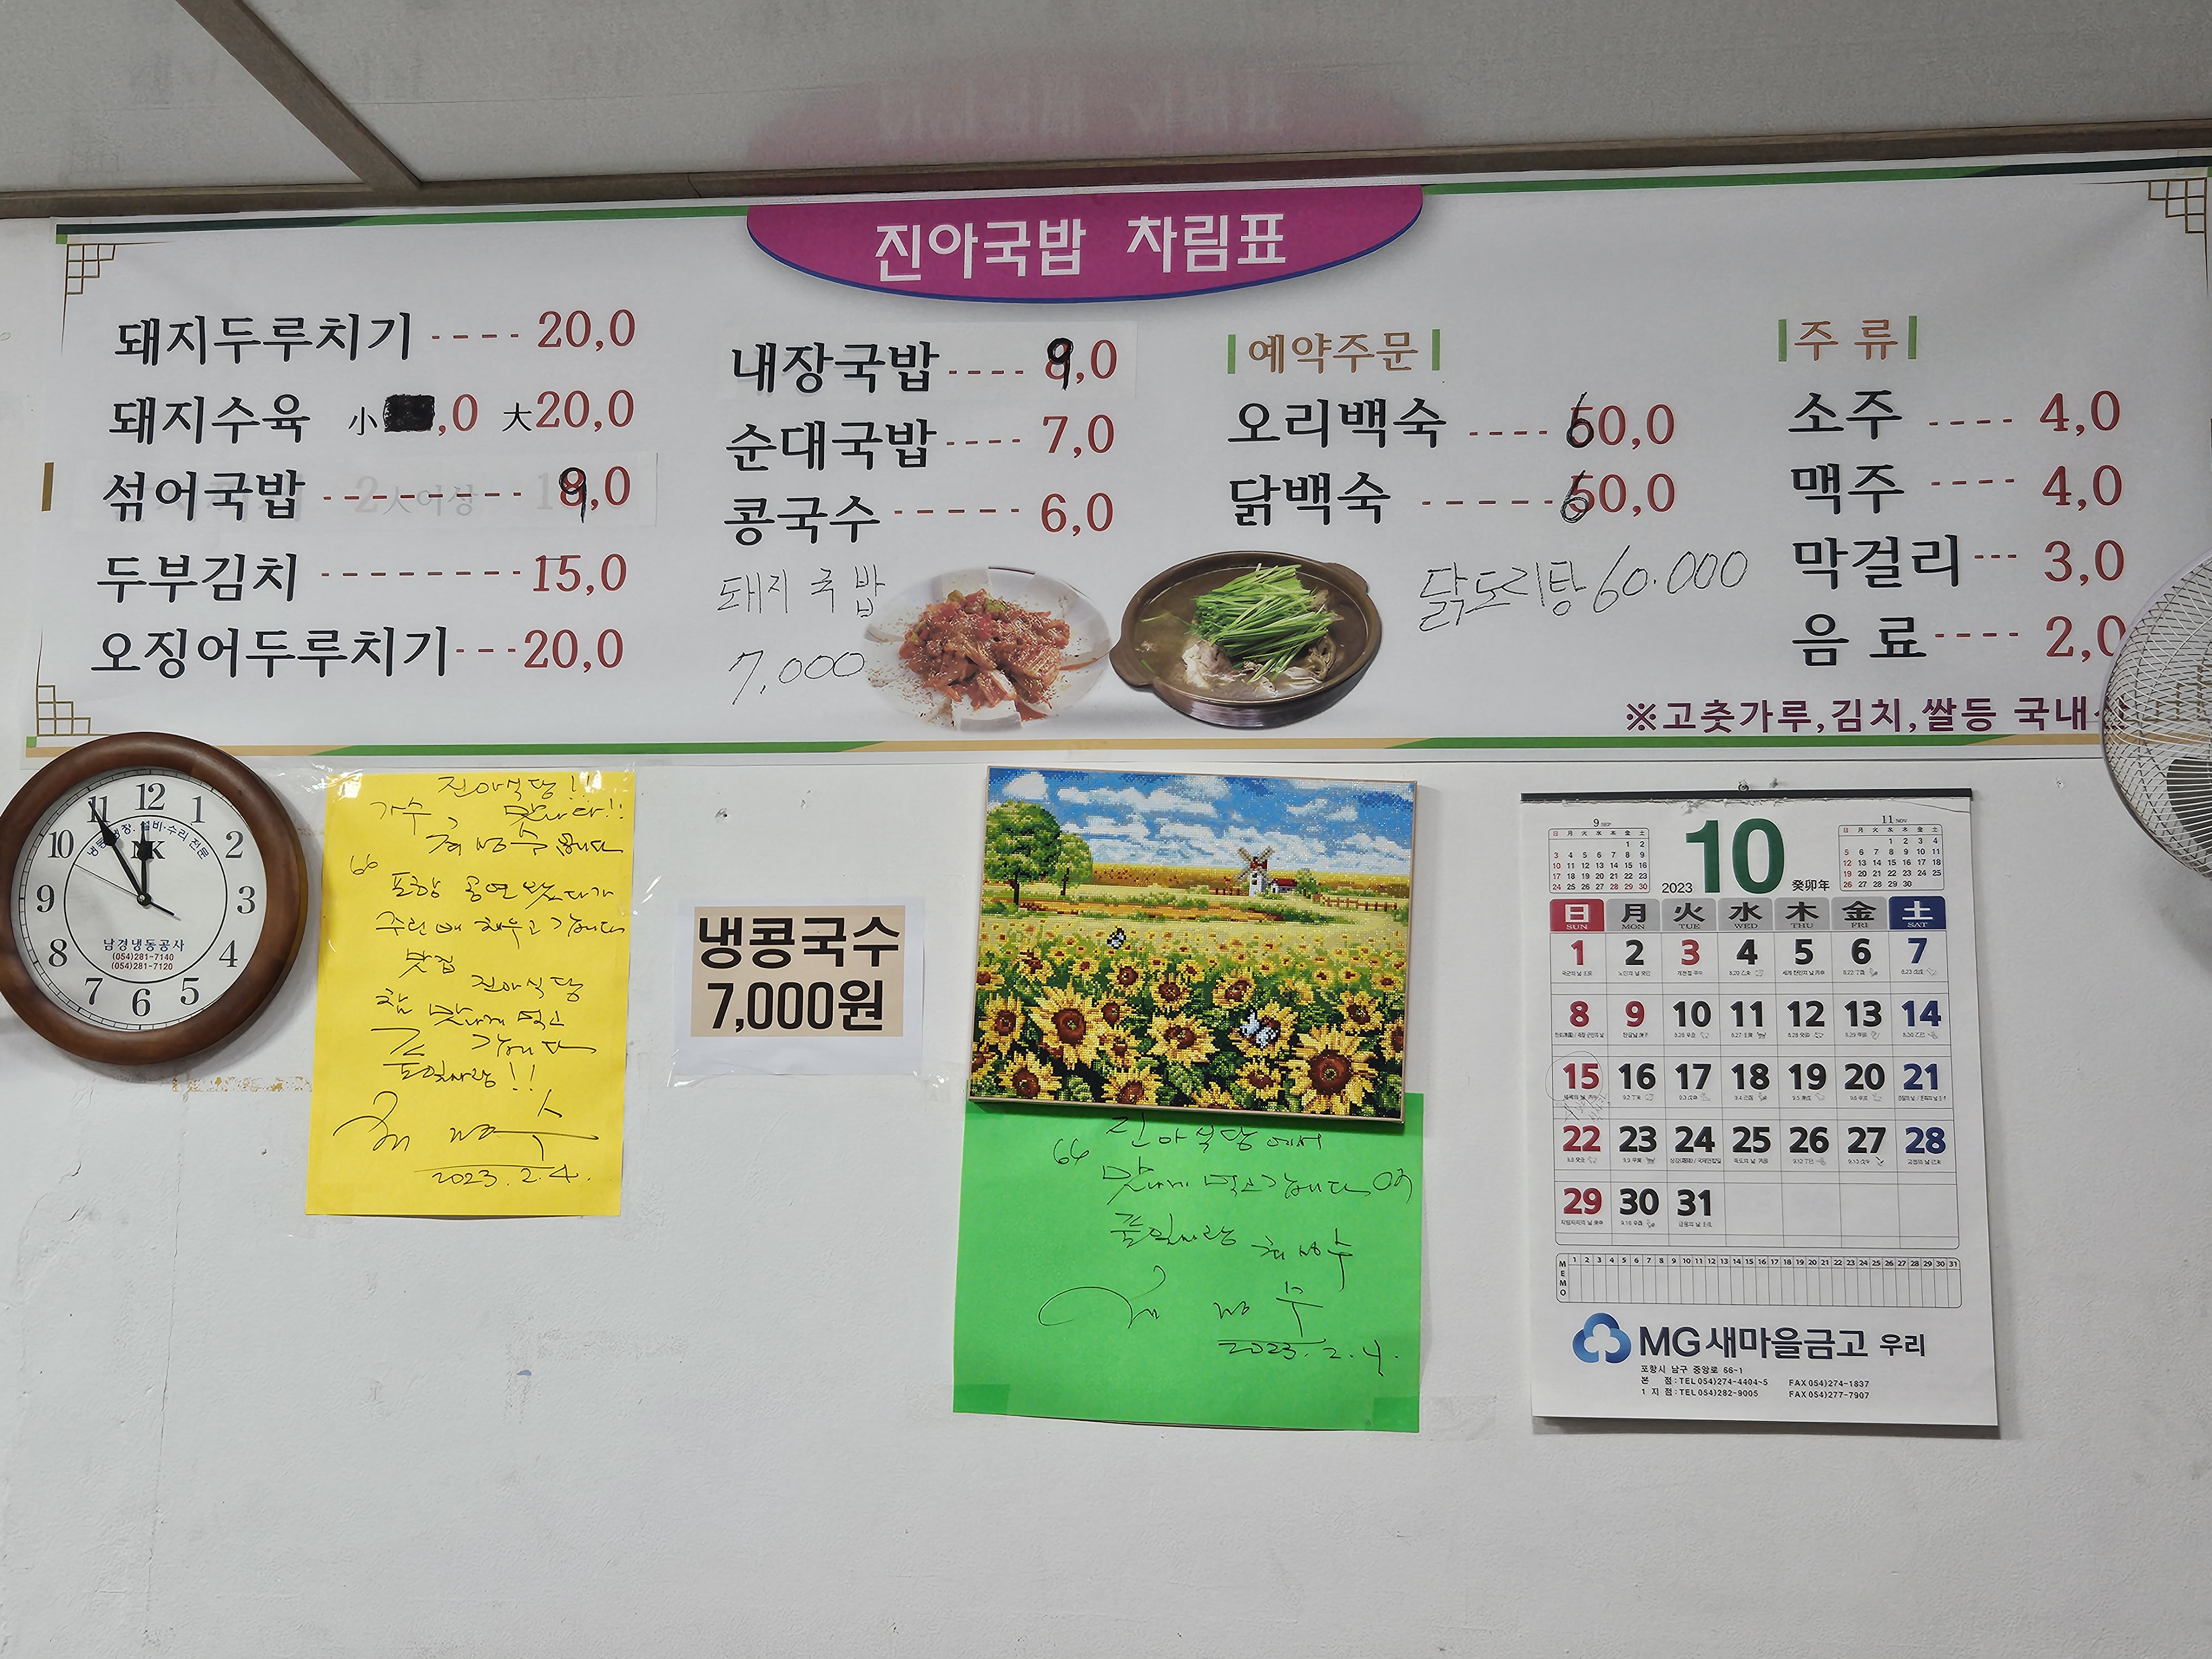 진아국밥 차림표
돼지두루치기 ---- 20,0
돼지수육 小 ,0 大 20,0
섞어국밥 -------- 9,0
두부김치 -------- 15,0
오징어두루치기 --- 20,0
내장국밥 ---- 9,0
순대국밥 ---- 7,0
콩국수 ----- 6,0
돼지국밥
7,000
예약주문
오리백숙 ---- 60,0
닭백숙 ----- 60,0
닭도리탕 60.000
주 류
소주 ---- 4,0
맥주 ---- 4,0
막걸리 --- 3,0
음 료 ---- 2,0
※고춧가루,김치,쌀등 국내
12 1 2 3 4 5 6 7 8 9 10 11
설비·수리 전문
NK
남경냉동공사
(054)281-7140
(054)281-7120
진아식당!!
가수, 맛나다!!
포항 공연 왔다가
맛집 진아식당
참 맛나게 먹고
갑니다
2023.2.4.
냉콩국수
7,000원
진아식당에서
맛나게 먹고 갑니다
2023.2.4.
9 SEP
日 月 火 水 木 金 土
1 2
3 4 5 6 7 8 9
10 11 12 13 14 15 16
17 18 19 20 21 22 23
24 25 26 27 28 29 30
2023 10 癸卯年
11 NOV
日 月 火 水 木 金 土
1 2 3 4
5 6 7 8 9 10 11
12 13 14 15 16 17 18
19 20 21 22 23 24 25
26 27 28 29 30
日 月 火 水 木 金 土
SUN MON TUE WED THU FRI SAT
1 2 3 4 5 6 7
8 9 10 11 12 13 14
15 16 17 18 19 20 21
22 23 24 25 26 27 28
29 30 31
MEMO 1 2 3 4 5 6 7 8 9 10 11 12 13 14 15 16 17 18 19 20 21 22 23 24 25 26 27 28 29 30 31
MG새마을금고 우리
포항시 남구 중앙로 66-1
본 점:TEL 054)274-4404~5 FAX 054)274-1837
1 지 점:TEL 054)282-9005 FAX 054)277-7907